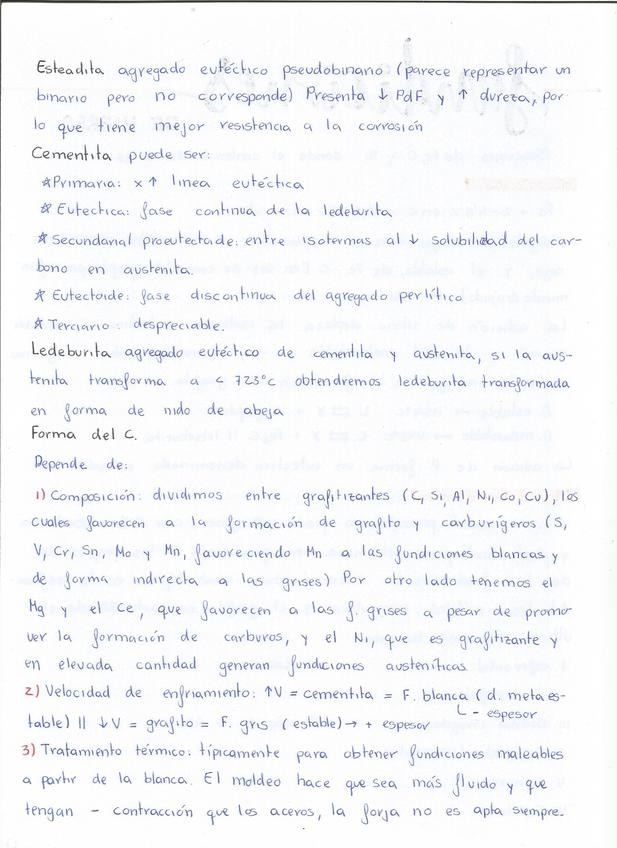 Esteadita agregado eutéctico pseudobinario (parece representar un
binario pero no corresponde) Presenta ↓ PdF y ↑ dureza, por
lo que tiene mejor resistencia a la corrosión
Cementita puede ser:
☆ Primaria: x ↑ linea eutéctica
☆ Eutectica: fase continua de la ledeburita
☆ Secundaria/ proeutectoide: entre isotermas al ↓ solubilidad del car-
bono en austenita.
☆ Eutectoide: fase discontinua del agregado perlítico
☆ Terciario: despreciable.
Ledeburita agregado eutéctico de cementita y austenita, si la aus-
tenita transforma a < 723°c obtendremos ledeburita transformada
en forma de nido de abeja
Forma del C.
Depende de:
1) Composición: dividimos entre grafitizantes (C, Si, Al, Ni, Co, Cu), los
cuales favorecen a la formación de grafito y carburígeros (S,
V, Cr, Sn, Mo y Mn, favoreciendo Mn a las fundiciones blancas y
de forma indirecta a las grises) Por otro lado tenemos el
Mg y el Ce, que favorecen a las f. grises a pesar de promo-
ver la formación de carburos, y el Ni, que es grafitizante y
en elevada cantidad generan fundiciones austeníticas
2) Velocidad de enfriamiento: ↑V = cementita = F. blanca (d. metaes-
└ - espesor
table) || ↓V = grafito = F. gris (estable) → + espesor
3) Tratamiento térmico: típicamente para obtener fundiciones maleables
a partir de la blanca. El moldeo hace que sea más fluido y que
tengan - contracción que los aceros, la forja no es apta siempre.